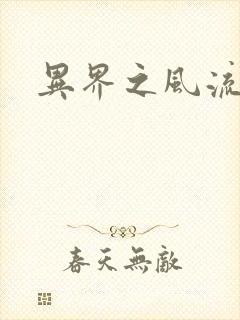 異界之風流
春天無敵